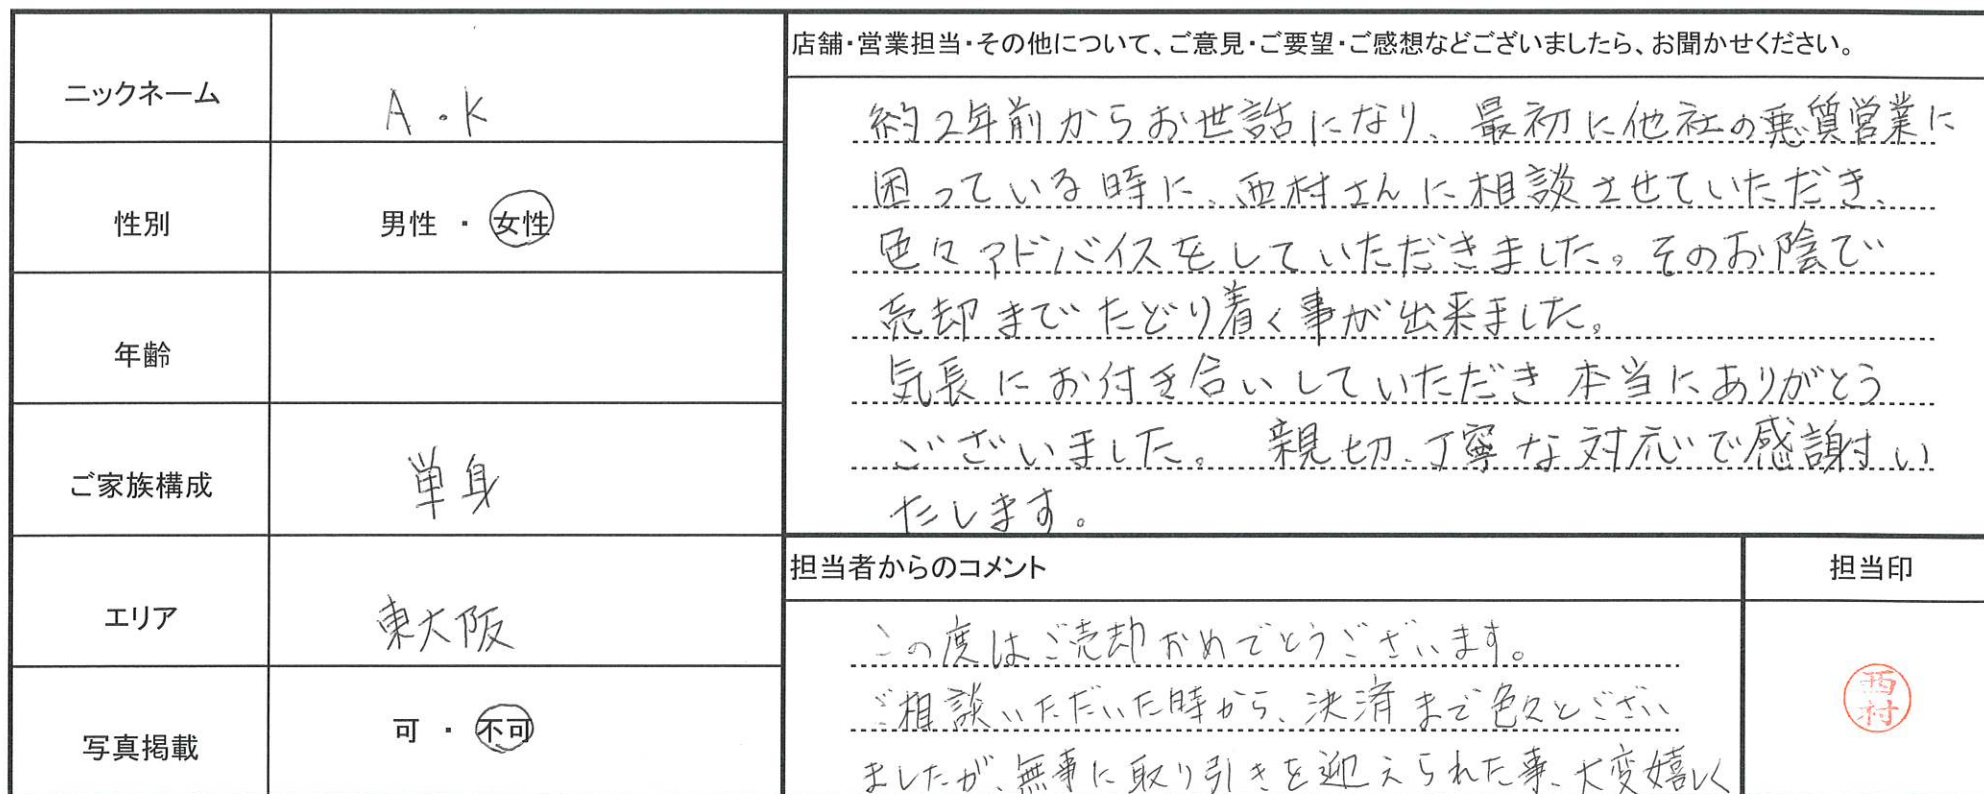 ニックネーム
A・K
性別
男性 ・ 女性
年齢
ご家族構成
単身
エリア
東大阪
写真掲載
可 ・ 不可
店舗・営業担当・その他について、ご意見・ご要望・ご感想などございましたら、お聞かせください。
約2年前からお世話になり、最初に他社の悪質営業に
困っている時に、西村さんに相談させていただき、
色々アドバイスをしていただきました。そのお陰で
売却までたどり着く事が出来ました。
気長にお付き合いしていただき本当にありがとう
ございました。親切、丁寧な対応で感謝い
たします。
担当者からのコメント
この度はご売却おめでとうございます。
ご相談いただいた時から、決済まで色々とござい
ましたが、無事に取り引きを迎えられた事、大変嬉しく
担当印
西村